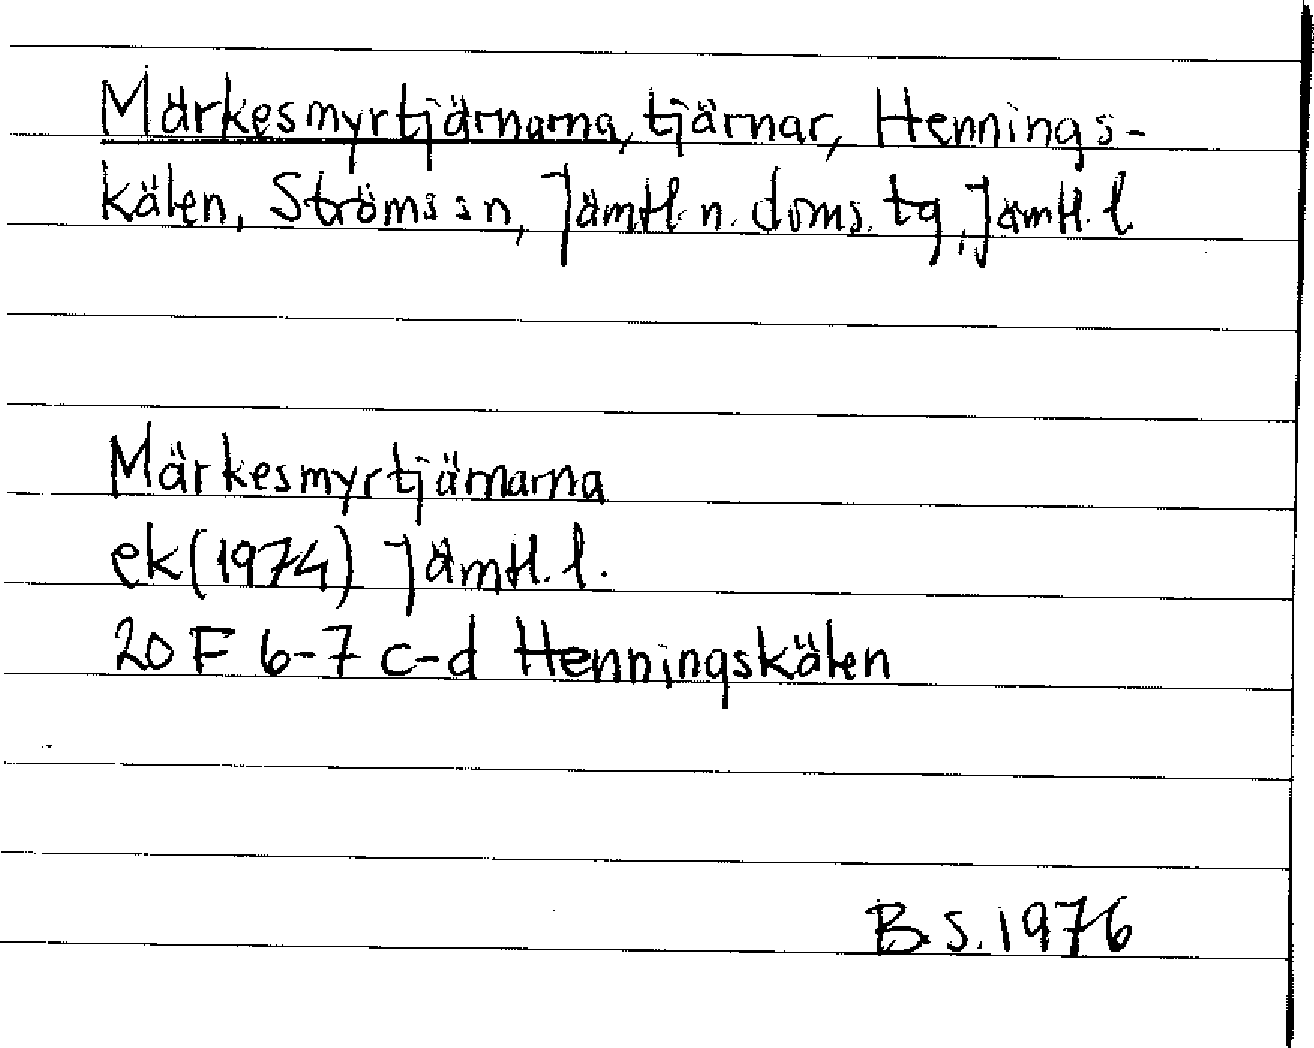 Märkesmyrtjärnarna, tjärnar, Hennings-
kälen, Ströms sn, Jämtl. n. doms. tg, Jämtl. l.
Märkesmyrtjärnarna
ek (1974) Jämtl. l.
20 F 6-7 c-d Henningskälen
B.S. 1976